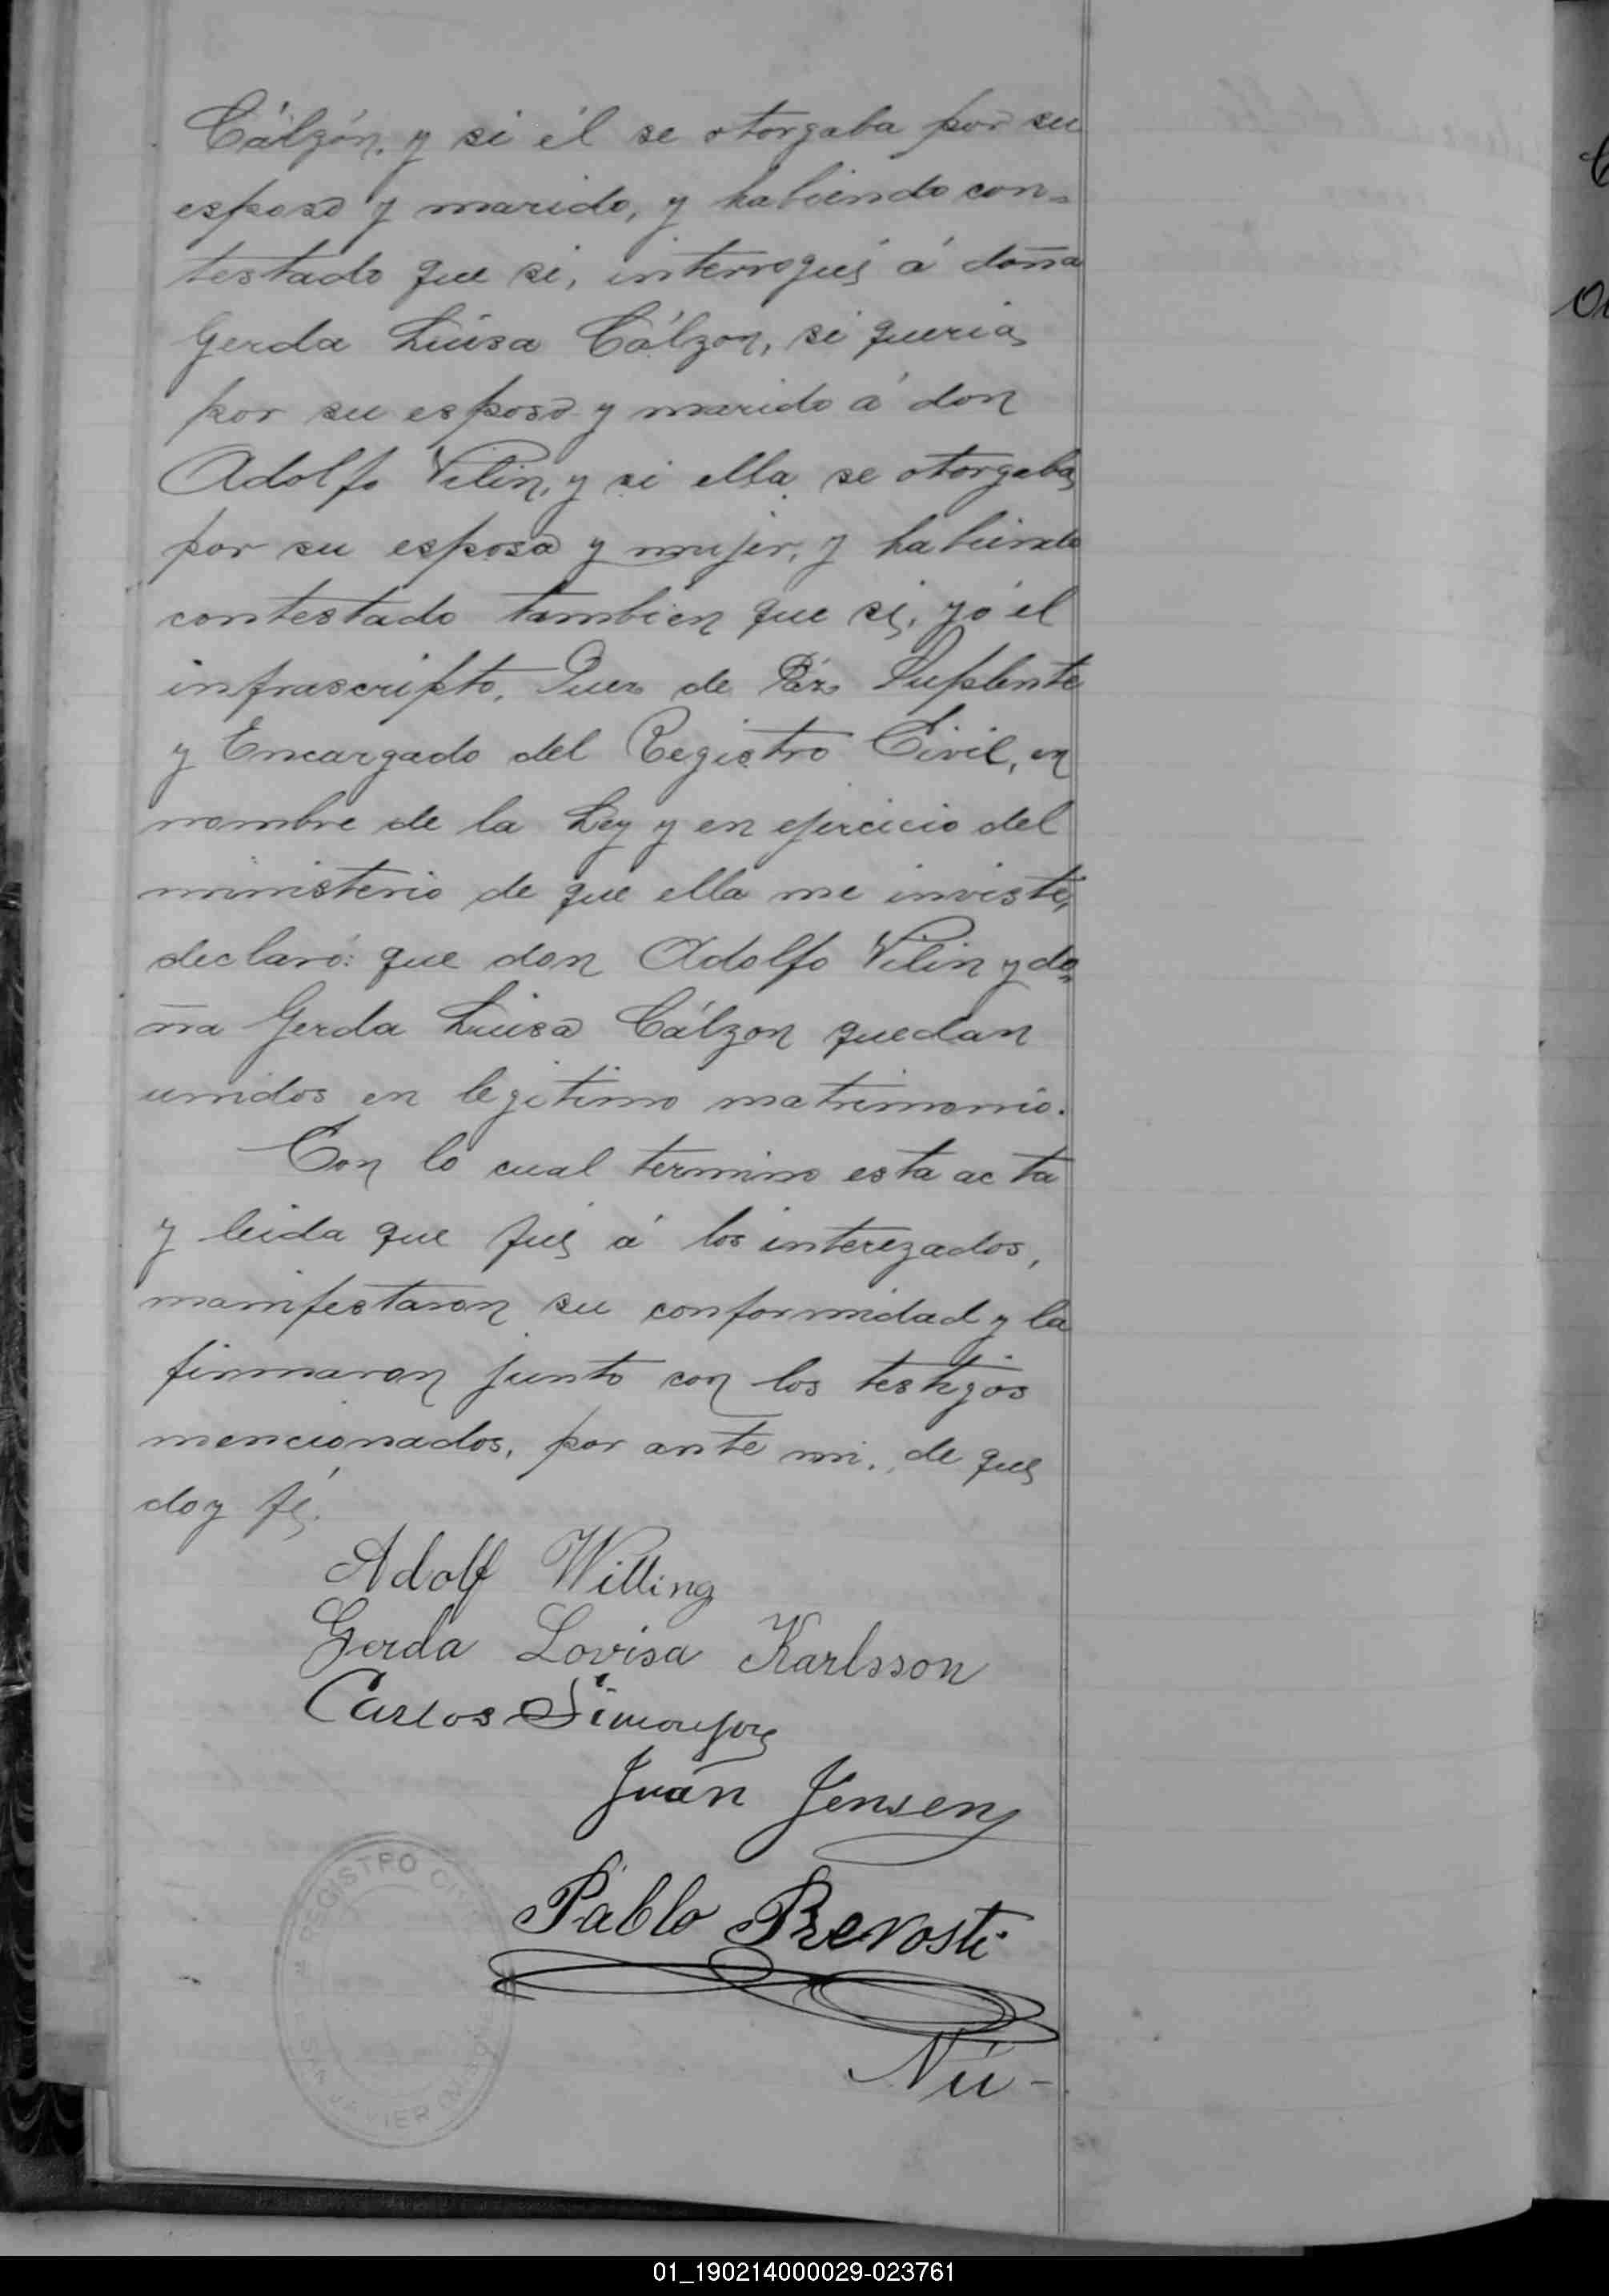 Cálzón, y si él se otorgaba por su
esposo y marido, y habiendo con-
testado que si, interrogué á doña
Gerda Luisa Cálzon, si queria
por su esposo y marido á don
Adolfo Vilin, y si ella se otorgaba
por su esposa y mujer, y habiendo
contestado tambien que si, yó el
infrascripto, Juez de Páz Suplente
y Encargado del Registro Civil, en
nombre de la Ley y en ejercicio del
ministerio de que ella me inviste,
declaró: que don Adolfo Vilin y do-
ña Gerda Luisa Cálzon quedan
unidos en legitimo matrimonio.
Con lo cual termino esta acta
y leida que fué á los interezados,
manifestaron su conformidad y la
firmaron junto con los testigos
mencionados, por ante mi, de que
doy fé.
Adolf Willing
Gerda Lovisa Karlsson
Carlos Simonson
Juan Jensen
REGISTRO CIVIL
Pablo Prevosti
JAVIER
Nú-
01_190214000029-023761